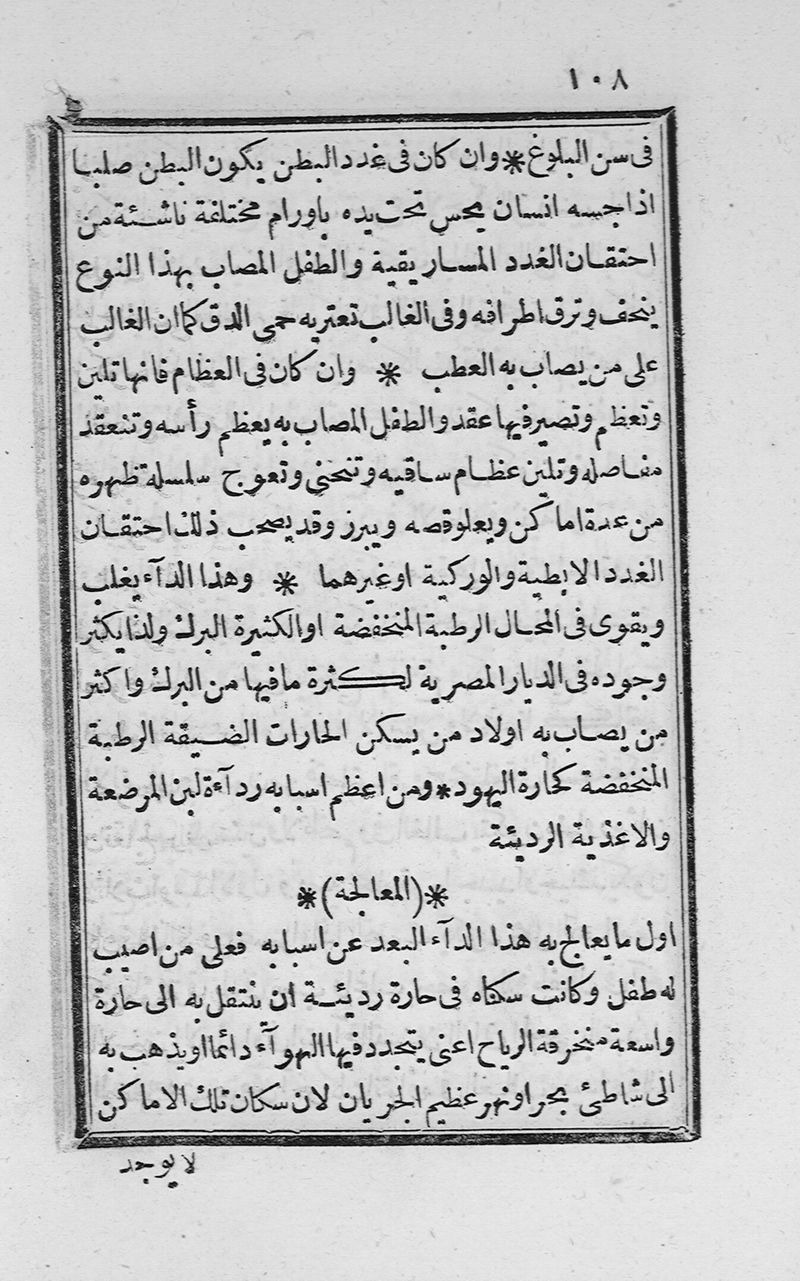 ١٠٨
فى سن البلوغ * وان كان فى غدد البطن يكون البطن صلبا
اذا جسه انسان يحس تحت يده باورام مختلفة ناشئة من
احتقان الغدد المساريقية والطفل المصاب بهذا النوع
ينحف وترق اطرافه وفى الغالب تعتريه حمى الدق كما ان الغالب
على من يصاب به العطب * وان كان فى العظام فانها تلين
وتعظم وتصير فيها عقد والطفل المصاب به يعظم رأسه وتنعقد
مفاصله وتلين عظام ساقيه وتنحنى وتعوج سلسلة ظهره
من عدة اماكن ويعلو قصه ويبرز وقد يصحب ذلك احتقان
الغدد الابطية والوركية او غيرهما * وهذا الدآء يغلب
ويقوى فى المحال الرطبة المنخفضة او الكثيرة البرك ولذا يكثر
وجوده فى الديار المصرية لكثرة ما فيها من البرك واكثر
من يصاب به اولاد من يسكن الحارات الضيقة الرطبة
المنخفضة كحارة اليهود * ومن اعظم اسبابه ردآءة لبن المرضعة
والاغذية الرديئة
*(المعالجة)*
اول ما يعالج به هذا الدآء البعد عن اسبابه فعلى من اصيب
له طفل وكانت سكناه فى حارة رديئة ان ينتقل به الى حارة
واسعة منخرقة الرياح اعنى يتجدد فيها الهوآء دائما او يذهب به
الى شاطئ بحر او نهر عظيم الجريان لان سكان تلك الاماكن
لا يوجد